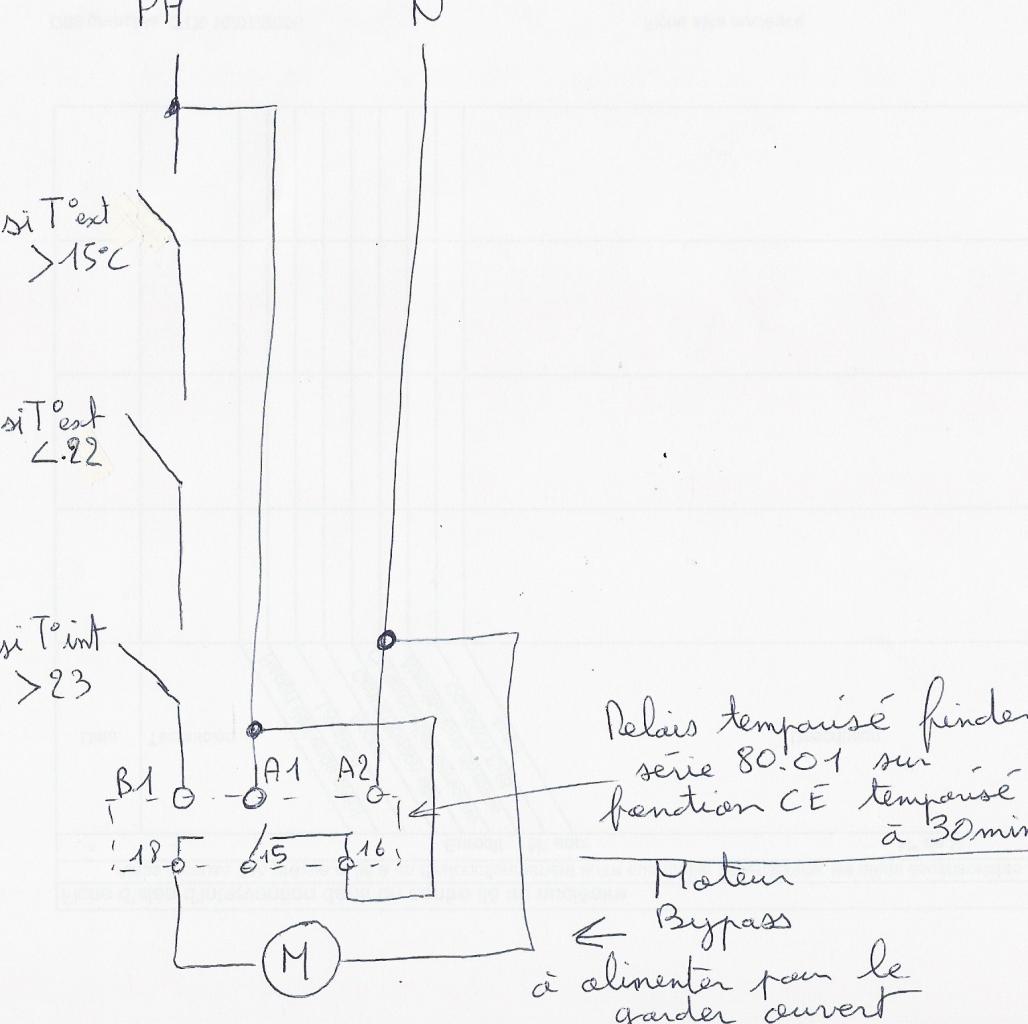 PH N
si T° ext
>15°C
si T° ext
<.22
si T° int
>23
B1 A1 A2
18 15 16
M
Relais temporisé finder
série 80.01 sur
fonction CE temporisé
à 30min
Moteur
Bypass
à alimenter pour le
garder ouvert